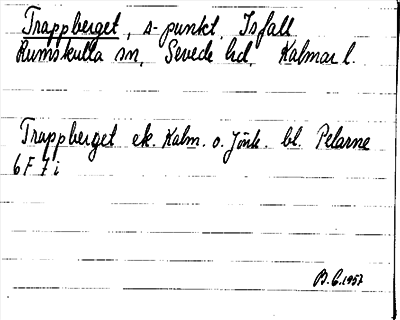 Trappberget, s-punkt, Isfall
Rumskulla sn, Sevede hd, Kalmar l.
Trappberget ek. Kalm. o. Jönk. bl. Pelarne
6 F 7 i
B.C. 1957